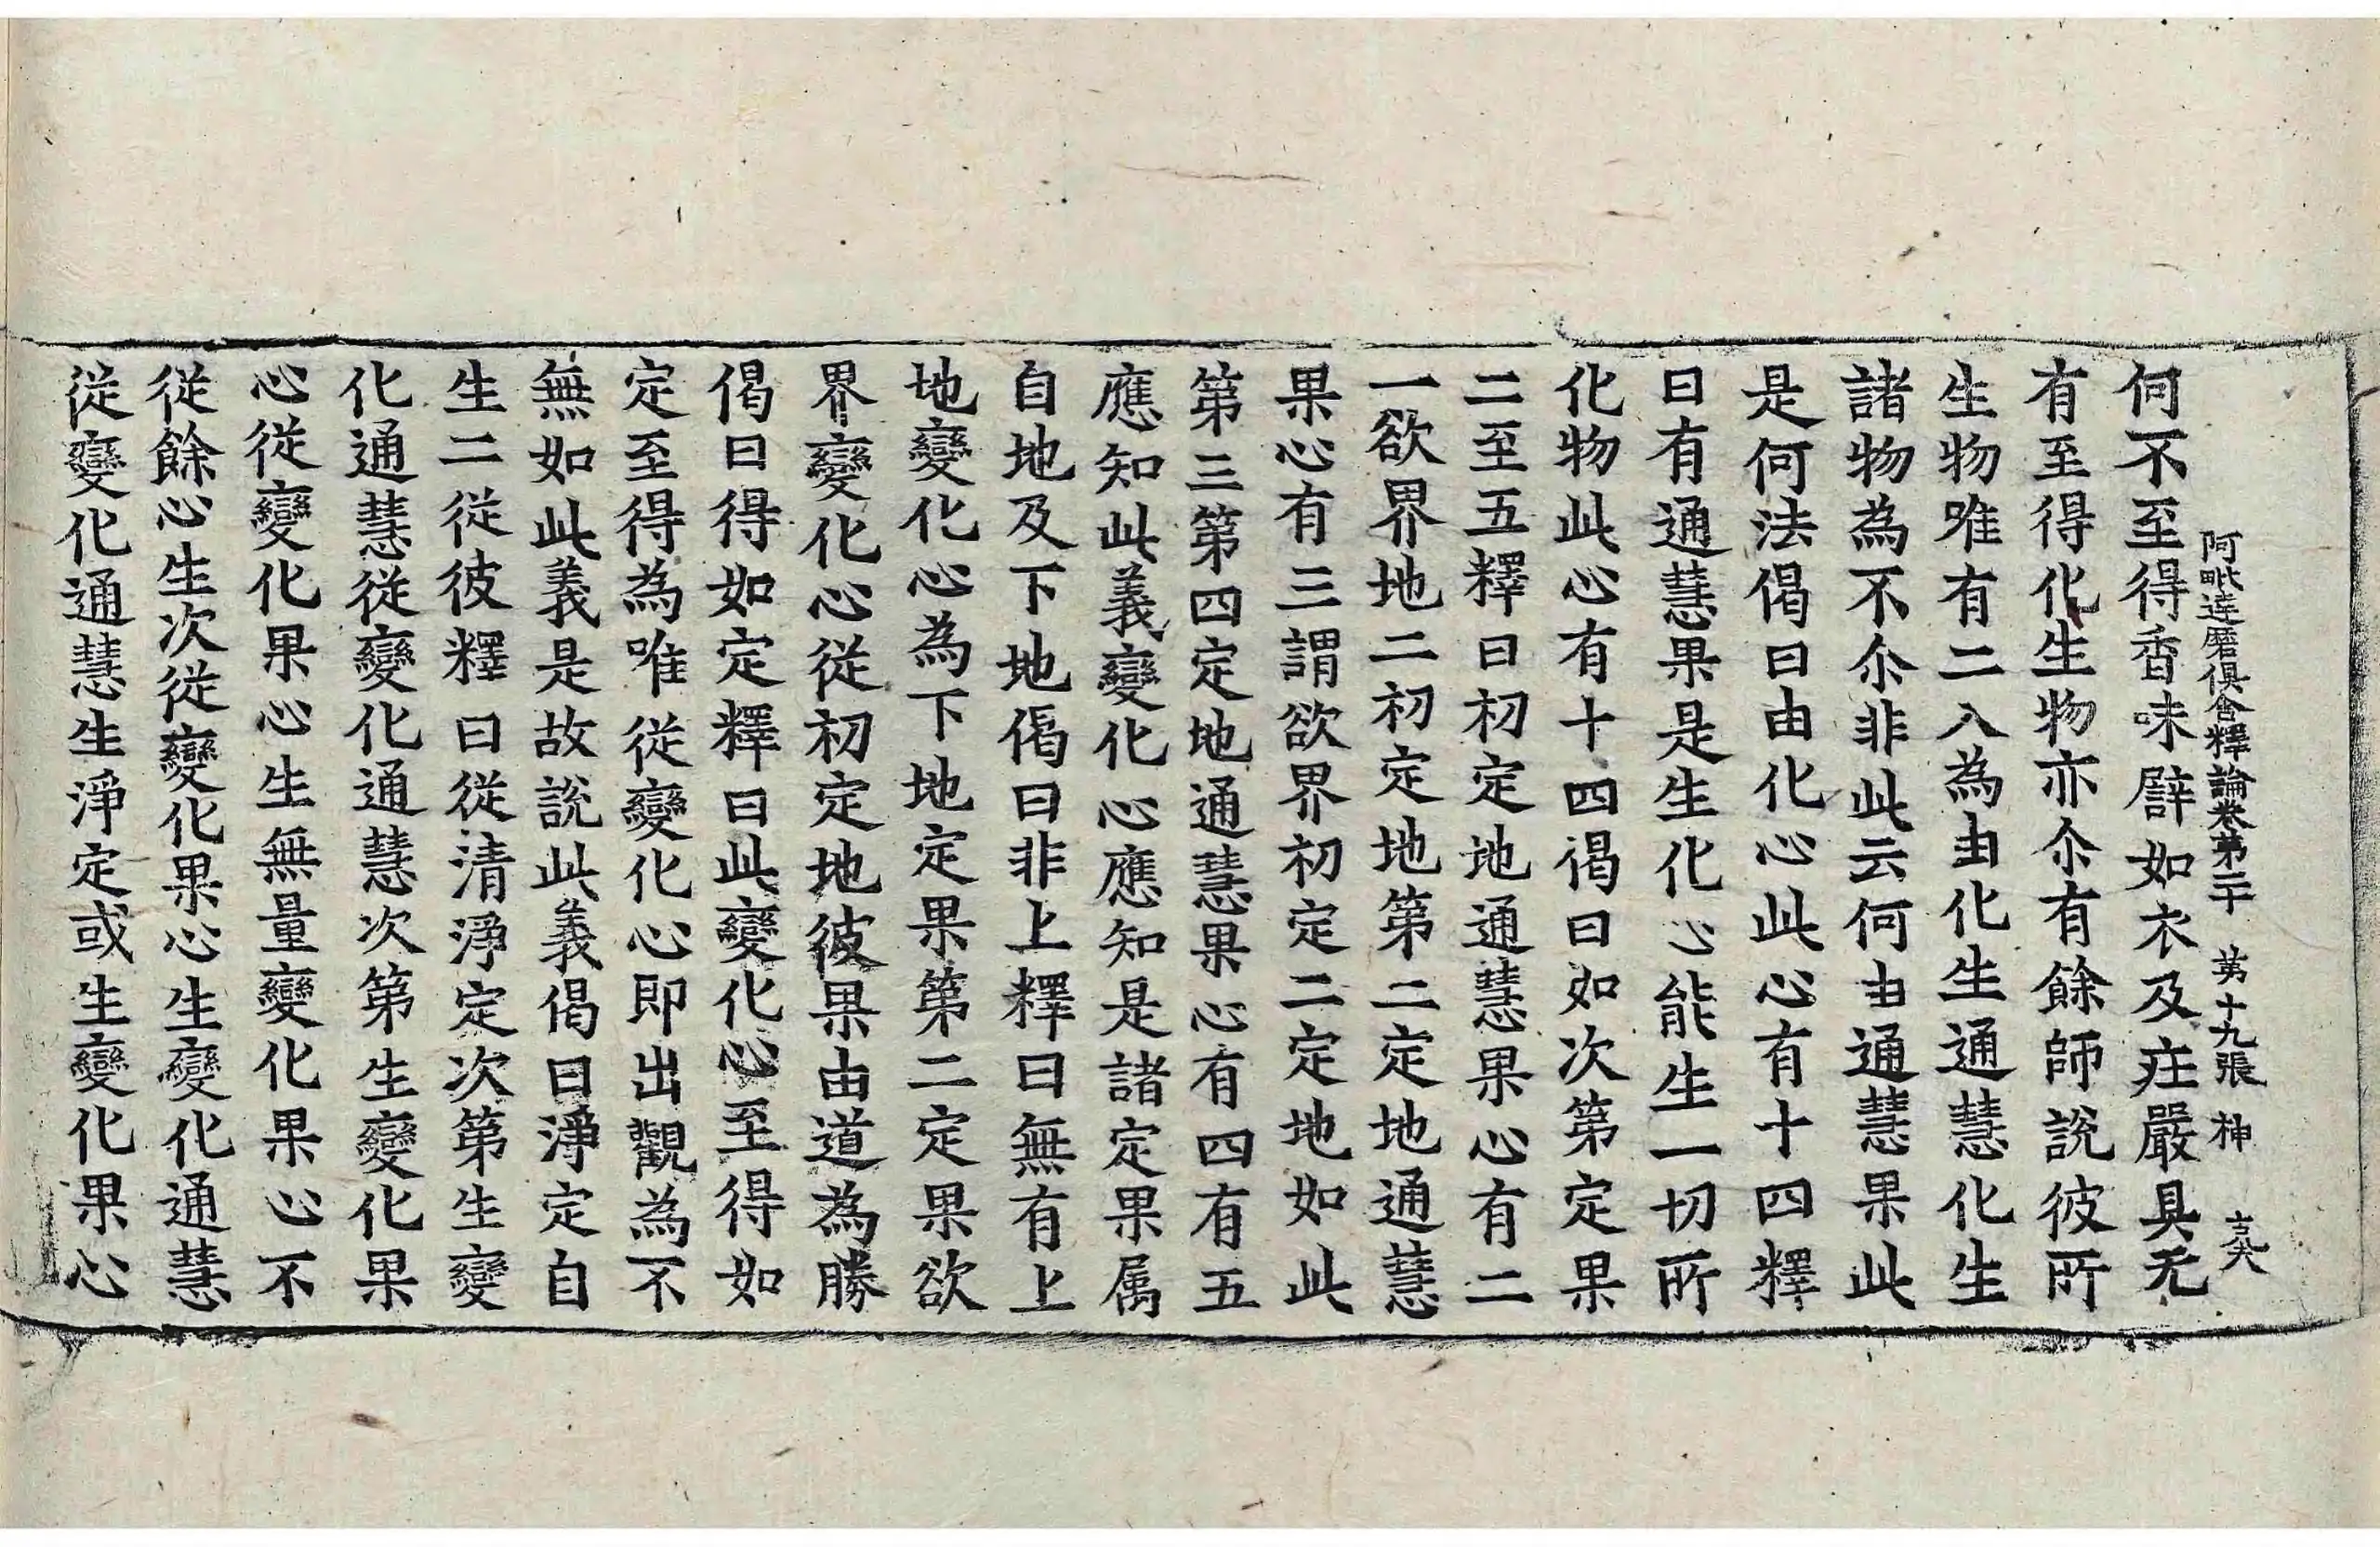 阿毗達磨俱舍釋論卷第二十 第十九張 神
何不至得香味譬如衣及庄嚴具无
有至得化生物亦尒有餘師說彼所
生物唯有二八為由化生通慧化生
諸物為不尒非此云何由通慧果此
是何法偈曰由化心此心有十四釋
曰有通慧果是生化心能生一切所
化物此心有十四偈曰如次第定果
二至五釋曰初定地通慧果心有二
一欲界地二初定地第二定地通慧
果心有三謂欲界初定二定地如此
第三第四定地通慧果心有四有五
應知此義變化心應知是諸定果属
自地及下地偈曰非上釋曰無有上
地變化心為下地定果第二定果欲
界變化心從初定地彼果由道為勝
偈曰得如定釋曰此變化心至得如
定至得為唯從變化心即出觀為不
無如此義是故說此義偈曰淨定自
生二從彼釋曰從清淨定次第生變
化通慧從變化通慧次第生變化果
心從變化果心生無量變化果心不
從餘心生次從變化果心生變化通慧
從變化通慧生淨定或生變化果心